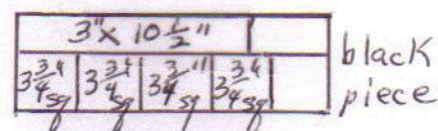 3"x 10 1/2"
3 3/4" sq 3 3/4" sq 3 3/4" sq 3 3/4" sq
black
piece